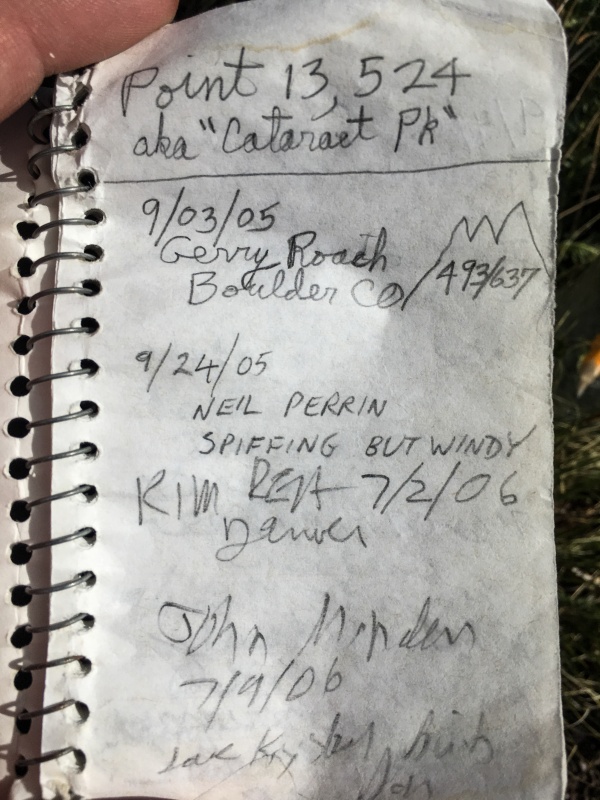 Point 13,524
aka "Cataract Pk"
9/03/05
Gerry Roach
Boulder CO 493/637
9/24/05
NEIL PERRIN
SPIFFING BUT WINDY
KIM 7/2/06
Denver
John
7/9/06